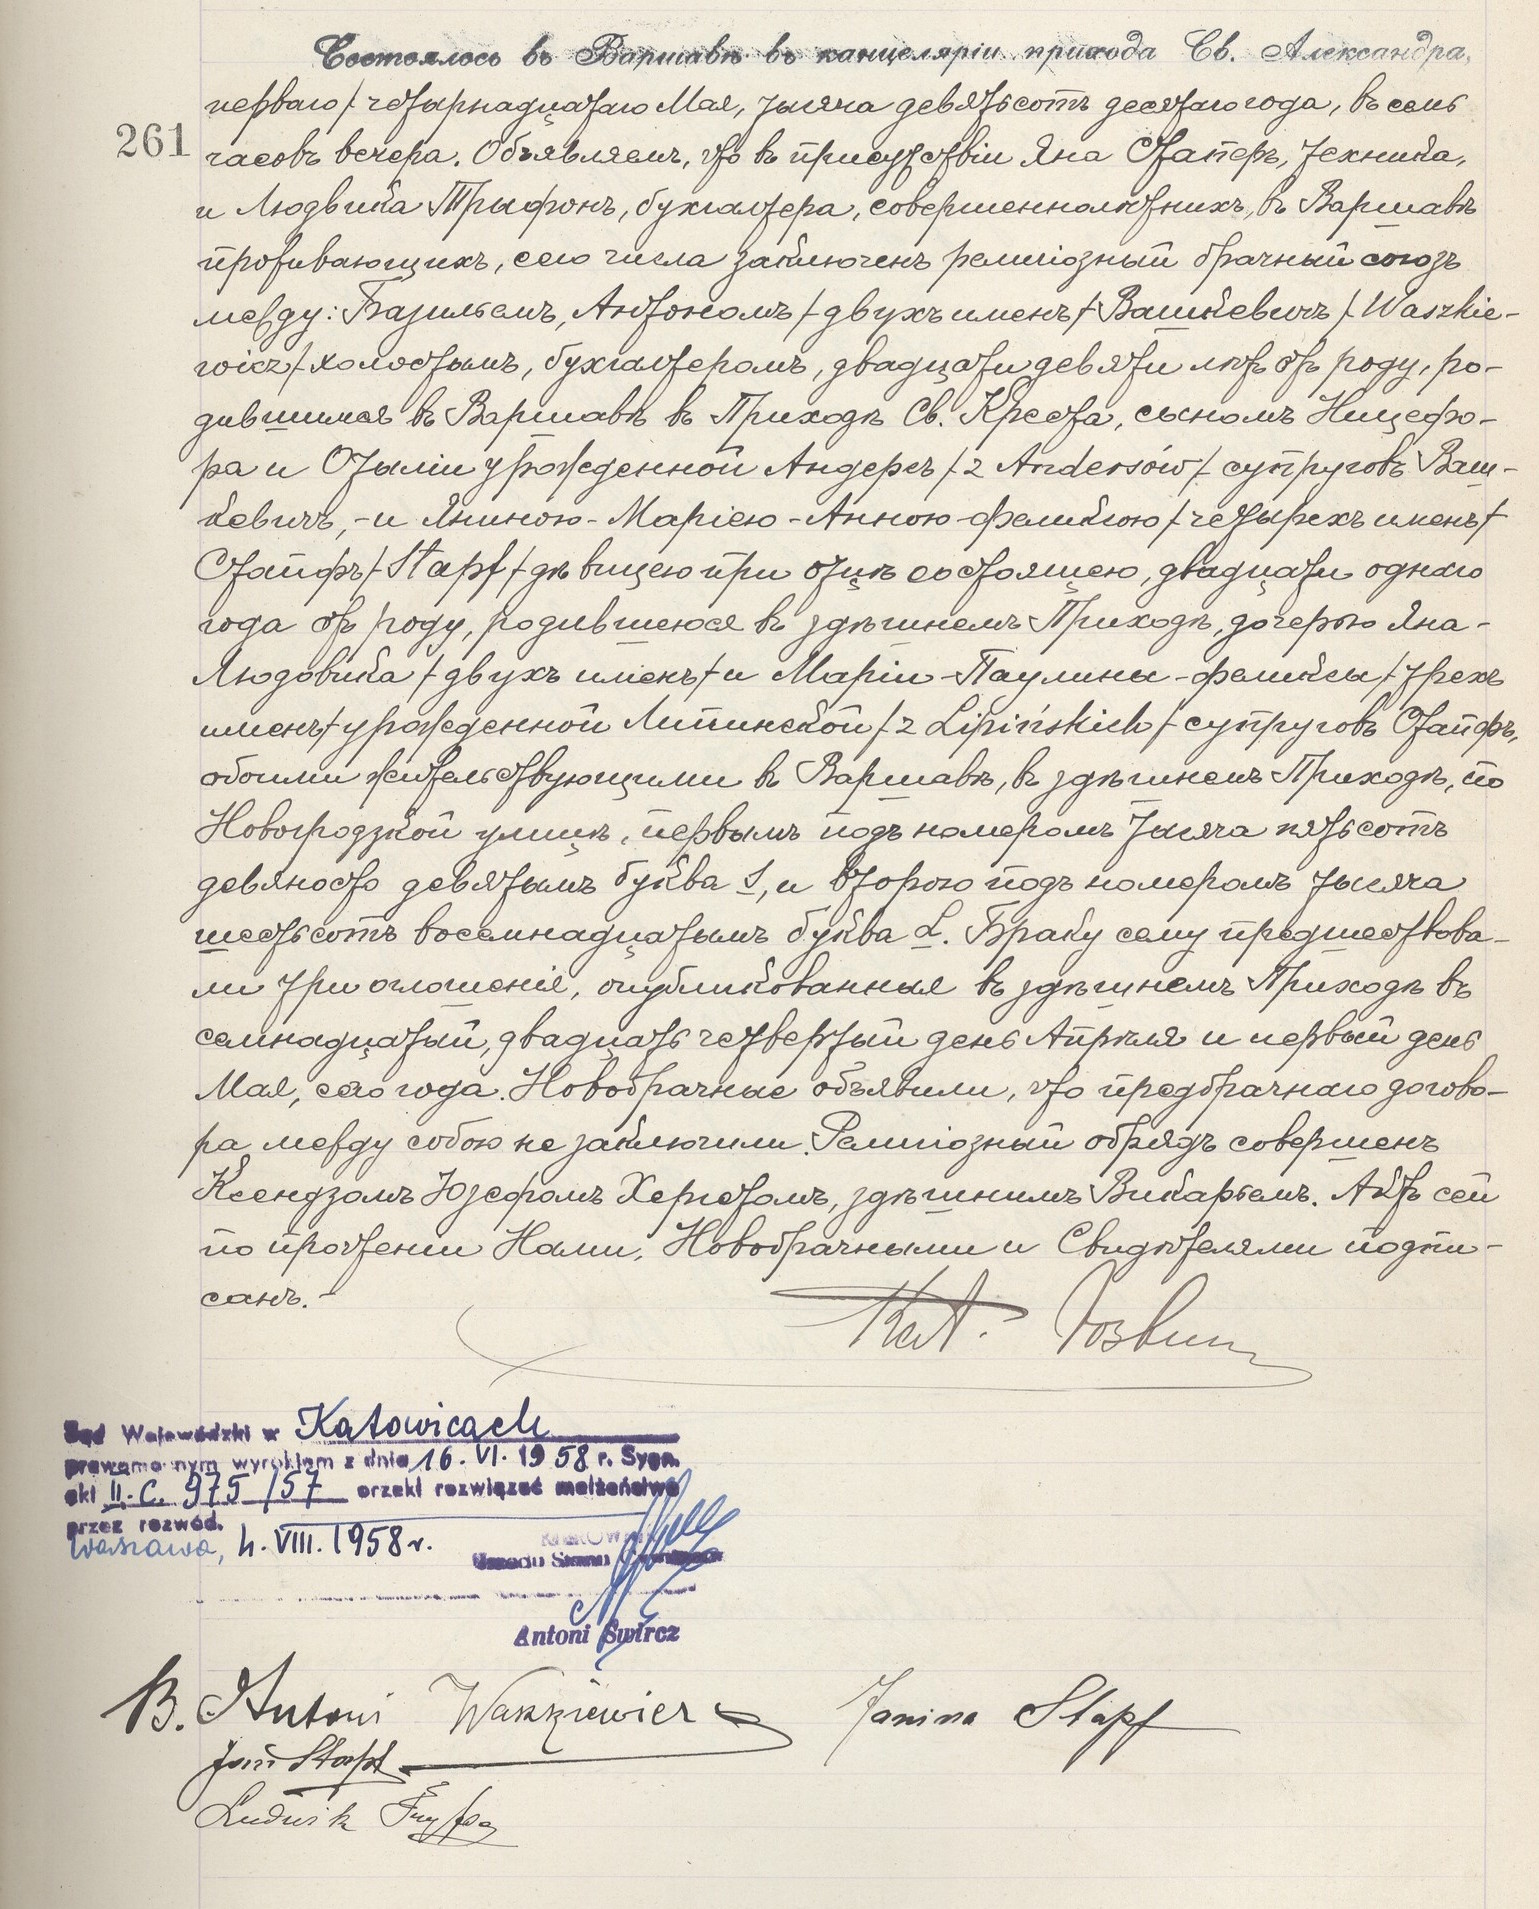 Состоялось въ Варшавѣ въ канцеляріи прихода Св. Александра,
перваго /четырнадцатаго Мая, тысяча девятьсотъ десятаго года, въ семь
261
часовъ вечера. Объявляемъ, что въ присутствіи Яна Стапфъ, техника,
и Людвика Трыфонъ, бухгалтера, совершеннолѣтнихъ, въ Варшавѣ
проживающихъ, сего числа заключенъ религіозный брачный союзъ
между: Базильемъ, Антономъ /двухъ именъ/ Вашкевичъ /Waszkie-
wicz/ холостымъ, бухгалтеромъ, двадцати девяти лѣтъ отъ роду, ро-
дившимся въ Варшавѣ въ Приходѣ Св. Креста, сыномъ Ницефо-
ра и Отыліи урожденной Андерсъ /z Andersów/ супруговъ Ваш-
кевичъ, - и Яниною - Маріею - Анною - Феликсою /четырехъ именъ/
Стапфъ /Stapf/ дѣвицею при отцѣ состоящею, двадцати одного
года отъ роду, родившеюся въ здѣшнемъ Приходѣ, дочерью Яна -
Людовика /двухъ именъ/ и Маріи - Паулины - Феликсы /трехъ
именъ/ урожденной Липинской /z Lipińskich/ супруговъ Стапфъ,
обоими жительствующими въ Варшавѣ, въ здѣшнемъ Приходѣ, по
Новогродзкой улицѣ, первымъ подъ номеромъ тысяча пятьсотъ
девяносто девятымъ буква S, и второю подъ номеромъ тысяча
шестьсотъ восемнадцатымъ буква L. Браку сему предшествова-
ли три оглошенія, опубликованныя въ здѣшнемъ Приходѣ въ
семнадцатый, двадцать четвертый день Апрѣля и первый день
Мая, сего года. Новобрачные объявили, что предбрачнаго догово-
ра между собою не заключили. Религіозный обрядъ совершенъ
Ксендзомъ Юзефомъ Хергетомъ, здѣшнимъ Викаріемъ. Актъ сей
по прочтеніи Нами, Новобрачными и Свидѣтелями подпи-
санъ. -
Sąd Wojewódzki w Katowicach
prawomocnym wyrokiem z dnia 16. VI. 1958 r. Sygn.
akt II. C. 975/57 orzekł rozwiązać małżeństwo
przez rozwód.
Warszawa, 4. VIII. 1958 r.
Kierownik
Urzędu Stanu Cywilnego
Antoni Śwircz
B. Antoni Waszkiewicz
Janina Stapf
Jan Stapf
Ludwik